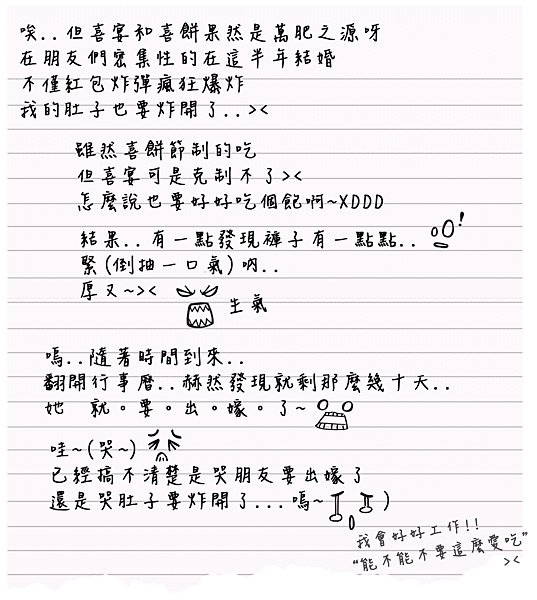 唉..但喜宴和喜餅果然是萬肥之源呀
在朋友們密集性的在這半年結婚
不僅紅包炸彈瘋狂爆炸
我的肚子也要炸開了..><
雖然喜餅節制的吃
但喜宴可是克制不了><
怎麼說也要好好吃個飽啊~XDDD
結果..有一點發現褲子有一點點..
緊(倒抽一口氣)吶..
厚又~><
生氣
嗚..隨著時間到來..
翻開行事曆..赫然發現就剩那麼幾十天..
她 就。要。出。嫁。了~
哇~(哭~)
已經搞不清楚是哭朋友要出嫁了
還是哭肚子要炸開了...嗚~
我會好好工作!!
"能不能不要這麼愛吃"
><